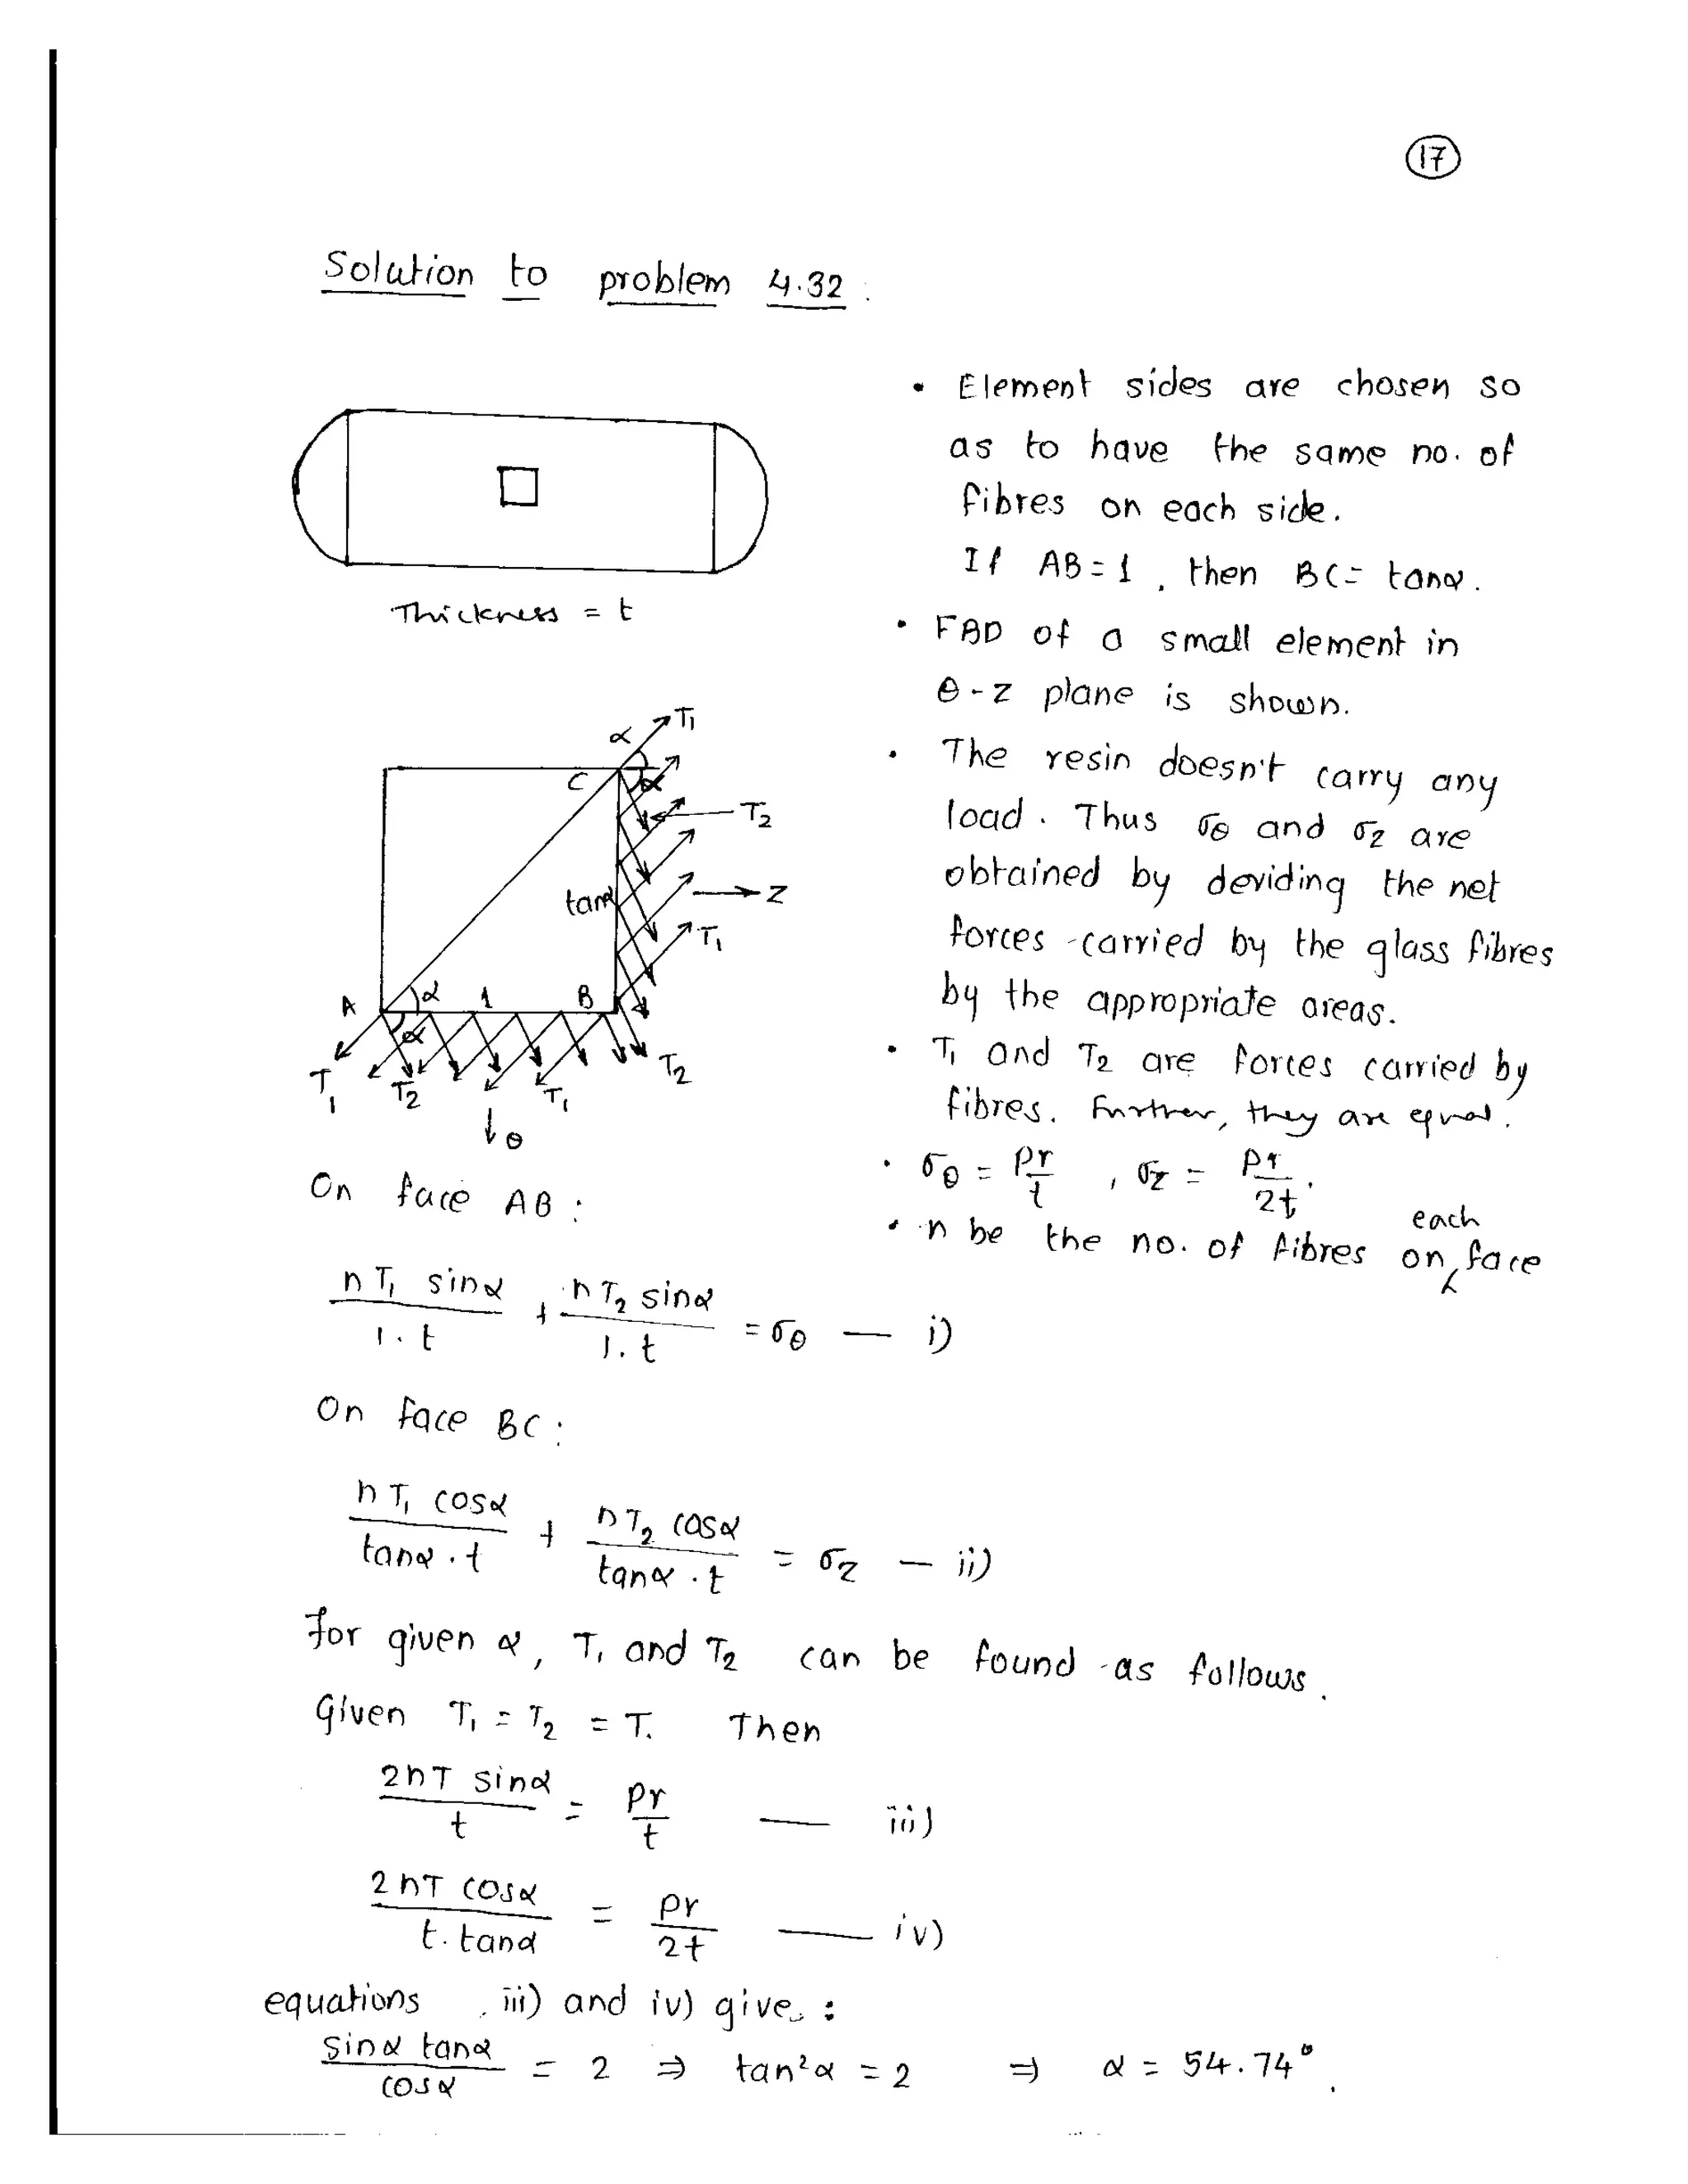 17
Solution to problem 4.32 :
• Element sides are chosen so
as to have the same no. of
fibres on each side.
If AB = 1 , then BC = tanα.
Thickness = t
• FBD of a small element in
θ - z plane is shown.
• The resin doesn't carry any
load. Thus σθ and σz are
obtained by deviding the net
forces carried by the glass fibres
by the appropriate areas.
• T1 and T2 are forces carried by
fibres. Further, they are equal.
• σθ = pr/t , σz = pr/2t .
• n be the no. of fibres on each face
α T1
C α
T2
tanα
z
T1
A α 1 B
α
T1 T2 T1 T2
θ
On face AB :
nT1 sinα / 1.t + nT2 sinα / 1.t = σθ — i)
On face BC :
nT1 cosα / tanα.t + nT2 cosα / tanα.t = σz — ii)
For given α, T1 and T2 can be found as follows.
Given T1 = T2 = T. Then
2nT sinα / t = pr/t — iii)
2nT cosα / t.tanα = pr/2t — iv)
equations iii) and iv) give :
sinα tanα / cosα = 2 ⇒ tan²α = 2 ⇒ α = 54.74° .